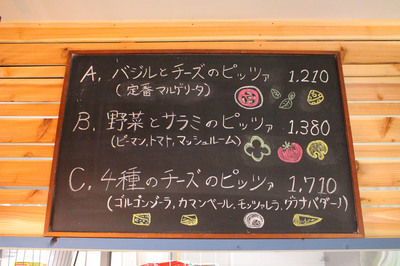 A. バジルとチーズのピッツァ 1,210
(定番マルゲリータ)
B. 野菜とサラミのピッツァ 1,380
(ピーマン,トマト,マッシュルーム)
C. 4種のチーズのピッツァ 1,710
(ゴルゴンゾーラ,カマンベール,モッツァレラ,グラナパダーノ)